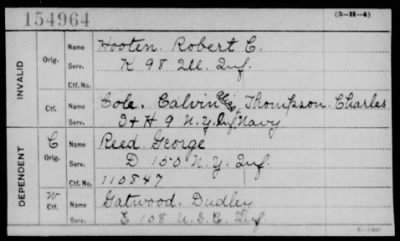 154964
(3-H-4)
INVALID
Orig. Name Hooten. Robert C.
Serv. K 98 Ill. Inf.
Ctf. No.
Ctf. Name Cole. Calvin Alias Thompson. Charles
Serv. I & H 9 N.Y. Inf Navy
DEPENDENT
C Orig. Name Reed George
Serv. D 150 N.Y. Inf.
Ctf. No. 110547
W Ctf. Name Gatwood. Dudley
Serv. E 108 U.S.C. Inf